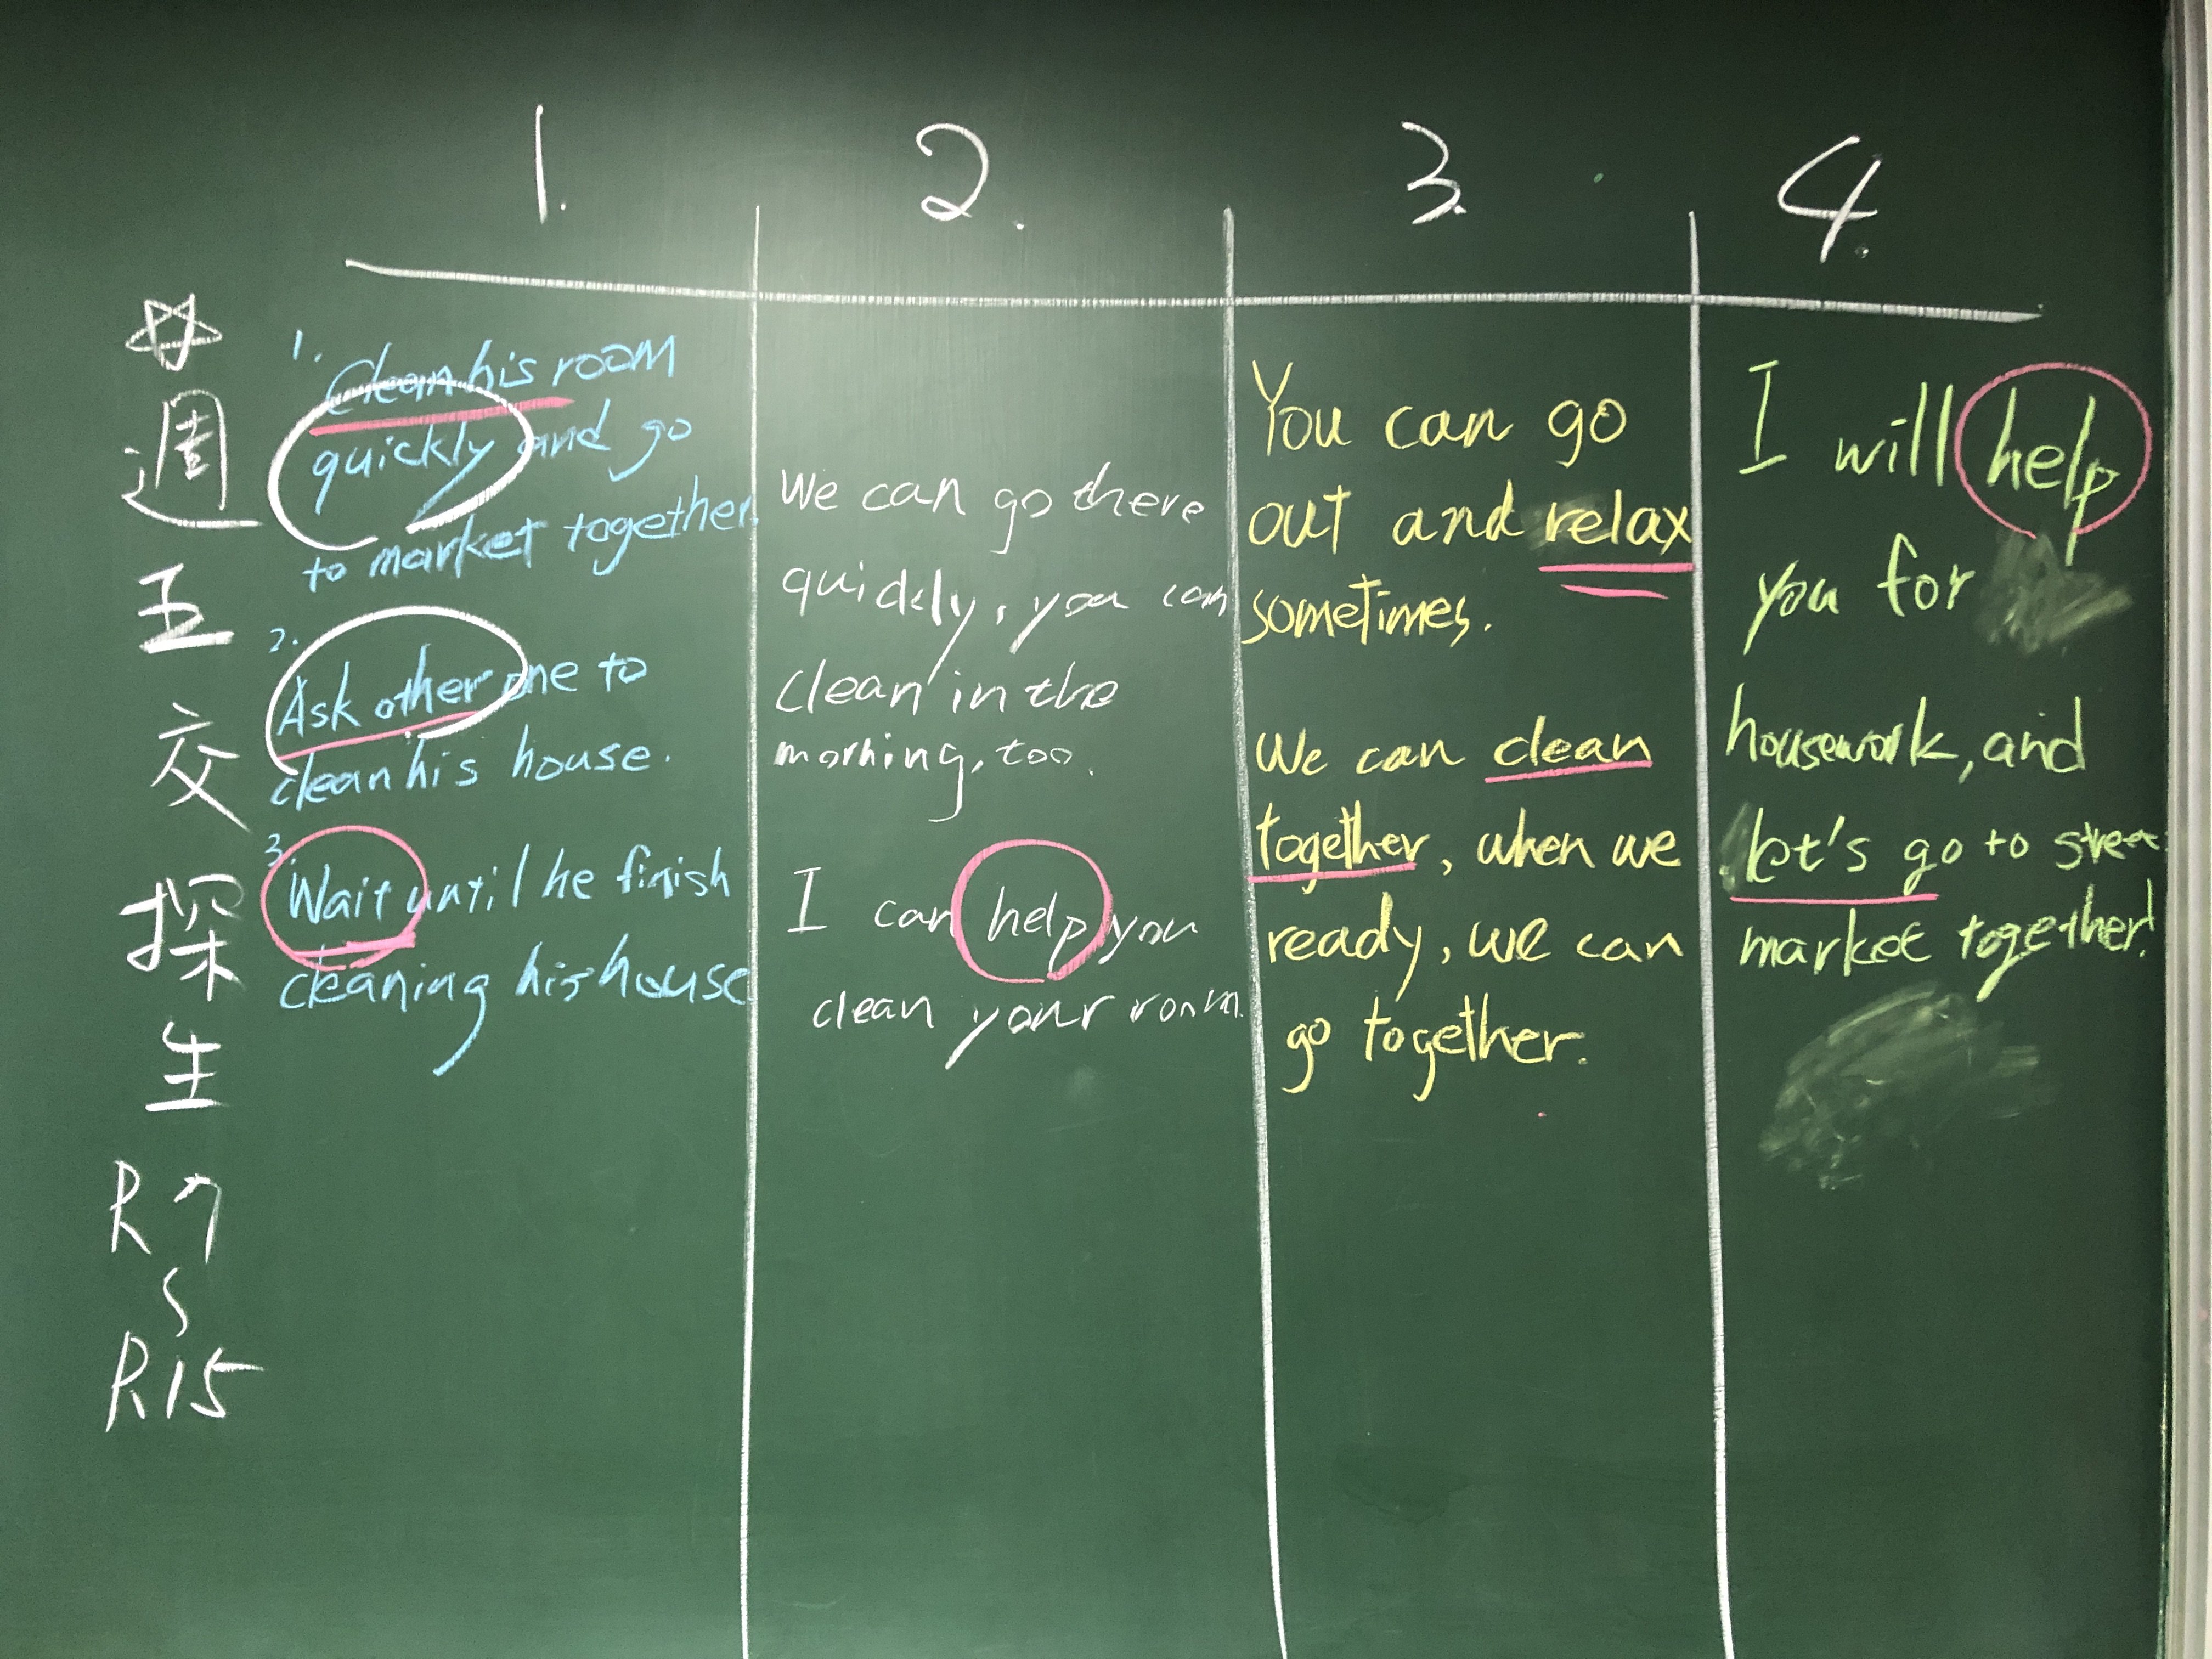 1.
2.
3.
4.
☆
週
五
交
探
生
R7
~
R15
1. Clean his room
quickly and go
to market together
2.
Ask other one to
clean his house.
3.
Wait until he finish
cleaning his house
We can go there
quickly, you can
clean in the
morning, too.
I can help you
clean your room.
You can go
out and relax
sometimes.
We can clean
together, when we
ready, we can
go together.
I will help
you for
housework, and
let's go to
market together!